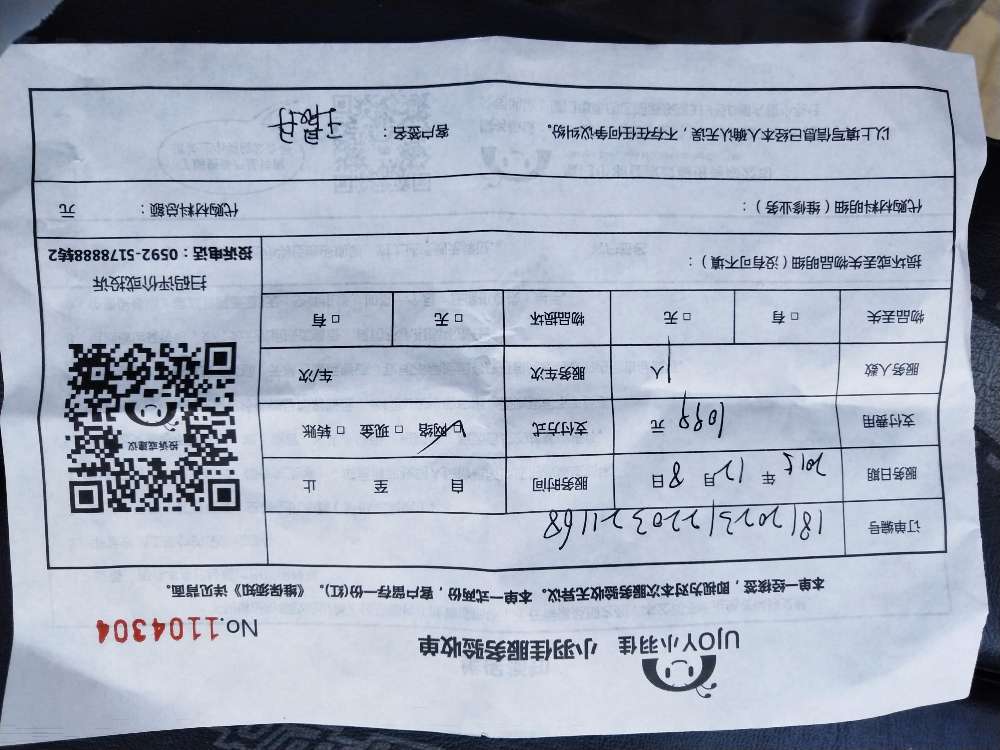 UJOY小羽佳 小羽佳服务验收单
No.1104304
本单一经接签，即视为对本次服务验收无异议。本单一式两份，客户留存一份(红)。《维保须知》详见背面。
订单编号
服务日期 2015 年 12 月 8 日 服务时间 自 至 止
支付费用 1099 元 支付方式 ☑网络 □ 现金 □ 转账
服务人数 1 人 服务车次 车/次
物品丢失 □ 有 □ 无 物品损坏 □ 无 □ 有
损坏或丢失物品明细（没有可不填）：
投诉或建议
扫码评价或投诉
投诉电话：0592-5178888转2
代购材料明细（维修业务）： 代购材料总额： 元
以上填写信息已经本人确认无误，不存在任何争议纠纷。 客户签名：